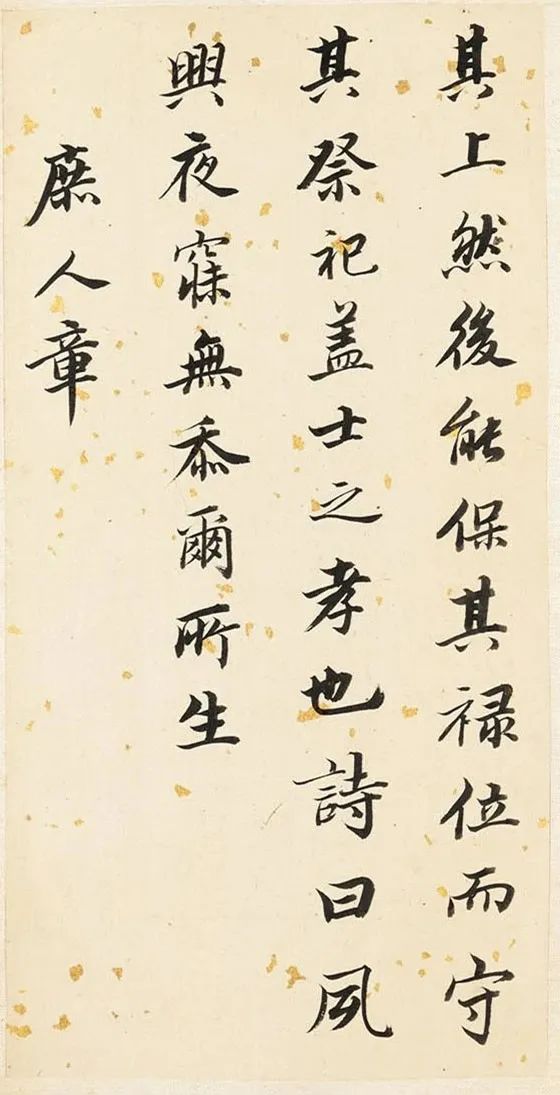 其上然後能保其禄位而守
其祭祀盖士之孝也詩曰夙
興夜寐無忝爾所生
庶人章